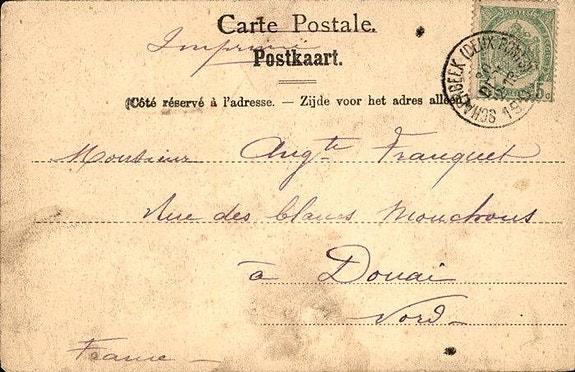 Carte Postale.
Imprimé
Postkaart.
(Côté réservé à l'adresse. — Zijde voor het adres alleen)
SCHAERBEEK (DEUX PONTS)
5c
Monsieur Augte Franquet
Rue des blancs Mouchons
à Douai
Nord
France